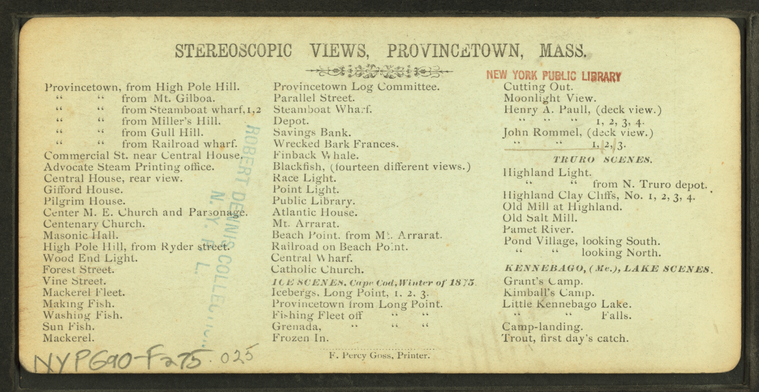 STEREOSCOPIC VIEWS, PROVINCETOWN, MASS.
NEW YORK PUBLIC LIBRARY
Provincetown, from High Pole Hill.
“ “ from Mt. Gilboa.
“ “ from Steamboat wharf, 1, 2
“ “ from Miller's Hill.
“ “ from Gull Hill.
“ “ from Railroad wharf.
Commercial St. near Central House.
Advocate Steam Printing office.
Central House, rear view.
Gifford House.
Pilgrim House.
Center M. E. Church and Parsonage.
Centenary Church.
Masonic Hall.
High Pole Hill, from Ryder street.
Wood End Light.
Forest Street.
Vine Street.
Mackerel Fleet.
Making Fish.
Washing Fish.
Sun Fish.
Mackerel.
Provincetown Log Committee.
Parallel Street.
Steamboat Wharf.
Depot.
Savings Bank.
Wrecked Bark Frances.
Finback Whale.
Blackfish, (fourteen different views.)
Race Light.
Point Light.
Public Library.
Atlantic House.
Mt. Arrarat.
Beach Point, from Mt. Arrarat.
Railroad on Beach Point.
Central Wharf.
Catholic Church.
ICE SCENES, Cape Cod, Winter of 1875
Icebergs, Long Point, 1. 2. 3.
Provincetown from Long Point.
Fishing Fleet off “ “
Grenada, “ “ “
Frozen In.
Cutting Out.
Moonlight View.
Henry A. Paull, (deck view.)
“ “ “ 1, 2, 3, 4.
John Rommel, (deck view.)
“ “ 1, 2, 3.
TRURO SCENES.
Highland Light.
“ “ from N. Truro depot.
Highland Clay Cliffs, No. 1, 2, 3, 4.
Old Mill at Highland.
Old Salt Mill.
Pamet River.
Pond Village, looking South.
“ “ looking North.
KENNEBAGO, (Me.), LAKE SCENES.
Grant's Camp.
Kimball's Camp.
Little Kennebago Lake.
“ “ Falls.
Camp-landing.
Trout, first day's catch.
F. Percy Goss, Printer.
ROBERT DENNIS COLLECTION
N. Y. P. L.
NYPG90-F275 .025